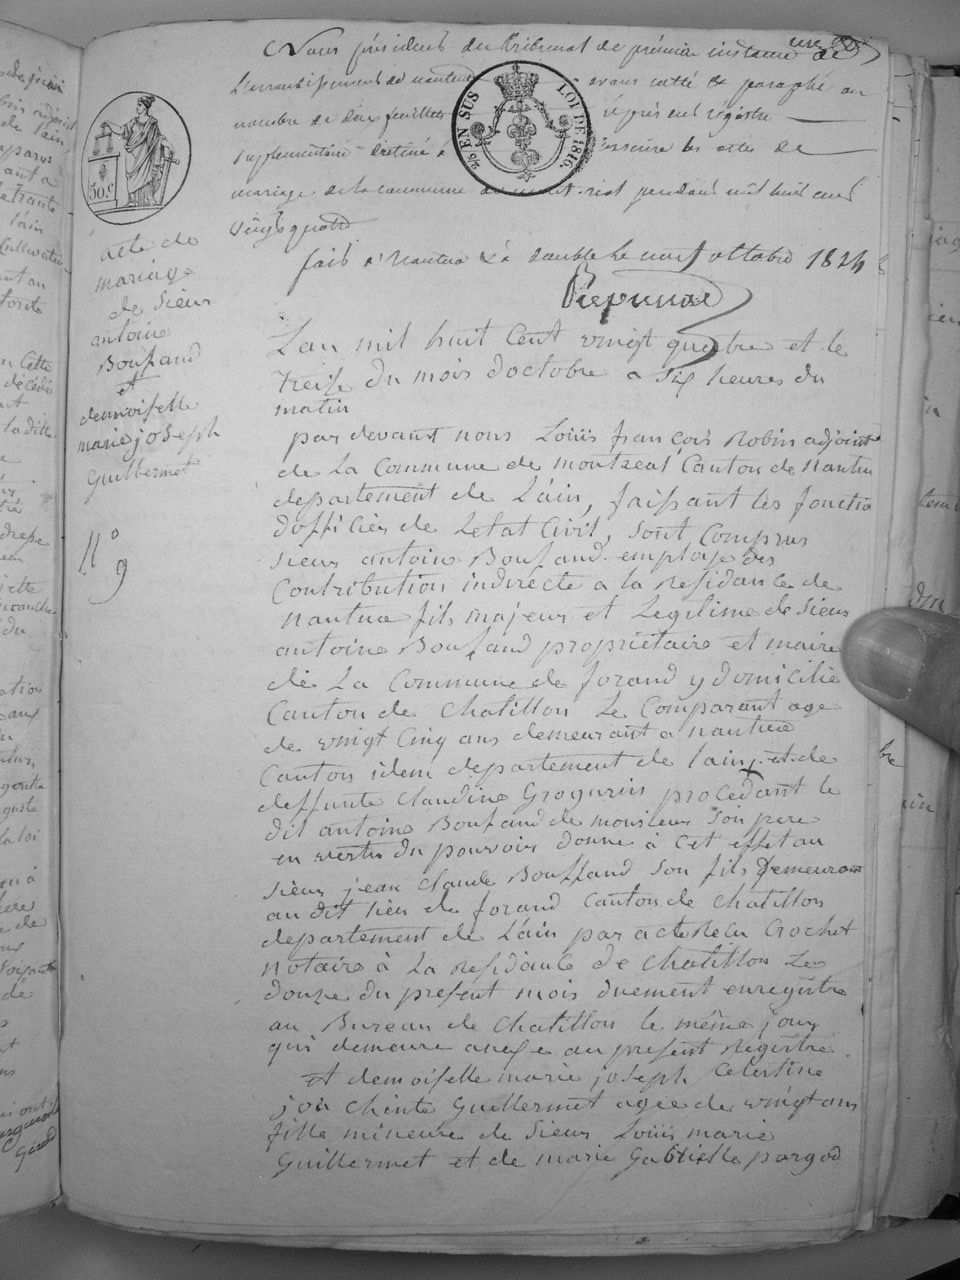 Nous président du tribunal de première instance de
l'arrondissement de nantua avons cotté & paraphé au
nombre de dix feuillets le présent régistre
supplémentaire destiné à inscrire les actes de
mariage de la commune de montréal pendant mil huit cent
vingt quatre
fait à Nantua & à double le neuf octobre 1824
30.c
EN SUS
LOI DE 1816.
acte de
mariage
de sieur
antoine
Bouffand
et
demoiselle
marie joseph
Guillermet
N° 9
Lan mil huit Cent vingt quatre et le
treise du mois doctobre a six heures du
matin
par devant nous Louis françois Robin adjoint
de La Commune de montreal Canton de nantua
departement de Lain, faissant les fonction
dofficies de Letat Civil, sont Comparus
sieur antoine Boufand employe des
Contribution indirecte a la residance de
nantua fils majeur et Legitime de sieur
antoine Boufand proprietaire et maire
de La Commune de forand y domicilie
Canton de Chatillon Le Comparant age
de vingt Cinq ans demeurant a nantua
Canton idem departement de lain, et de
deffunte Claudine procedant le
dit antoine Boufand de monsieur son pere
en vertu du pouvoir donne à Cet effet au
sieur jean Claude Bouffand son fils Demeurant
au dit lieu de forand Canton de Chatillon
departement de Lain par acte Recu Crochet
notaire à La residance de Chatillon Le
douze du present mois duement enregistre
au Bureau de Chatillon le même jour
qui demeure anexe au present registre.
et demoiselle marie joseph Celestine
joa Chinte Guillermet agee de vingt ans
fille mineure de sieur Louis marie
Guillermet et de marie Gabrielle pargod